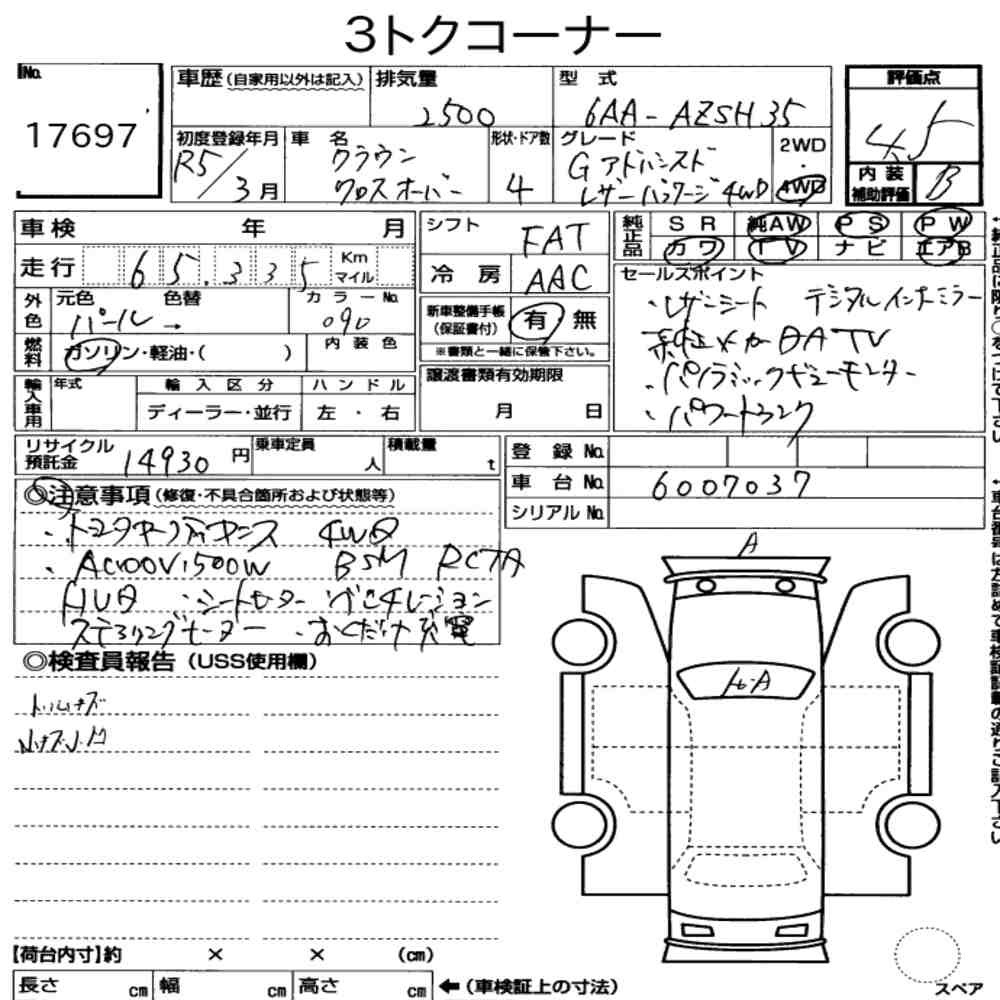 3トクコーナー
No.
17697
車歴(自家用以外は記入)
排気量
2500
型 式
6AA-AZSH35
評価点
4.5
内装補助評価
B
初度登録年月
R5/3月
車 名
クラウン
クロスオーバー
形状・ドア数
4
グレード
Gアドバンスド
レザーパッケージ4WD
2WD
・
4WD
車検 年 月
走行 65,335 Km マイル
シフト
FAT
冷 房
AAC
純正品
SR 純AW PS PW
カワ TV ナビ エアB
外色
元色 色替
パール→
カラーNo.
090
燃料
ガソリン・軽油・( )
内装色
新車整備手帳
(保証書付)
有 無
※書類と一緒に保管下さい。
セールスポイント
・レザーシート デジタルインナーミラー
純正メーカーDA TV
・パノラミックビューモニター
・パワートランク
輸入車用
年式
輸入区分
ディーラー・並行
ハンドル
左 ・ 右
譲渡書類有効期限
月 日
リサイクル
預託金 14930円
乗車定員
人
積載量
t
登 録 No.
車 台 No. 6007037
シリアルNo.
◎注意事項(修復・不具合箇所および状態等)
4WD
・AC100V1500W BSM RCTA
HUD ・シートヒーター ベンチレーション
ステアリングヒーター ・おくだけ充電
◎検査員報告(USS使用欄)
A
【荷台内寸】約 × × (cm)
長さ cm 幅 cm 高さ cm
←(車検証上の寸法)
スペア